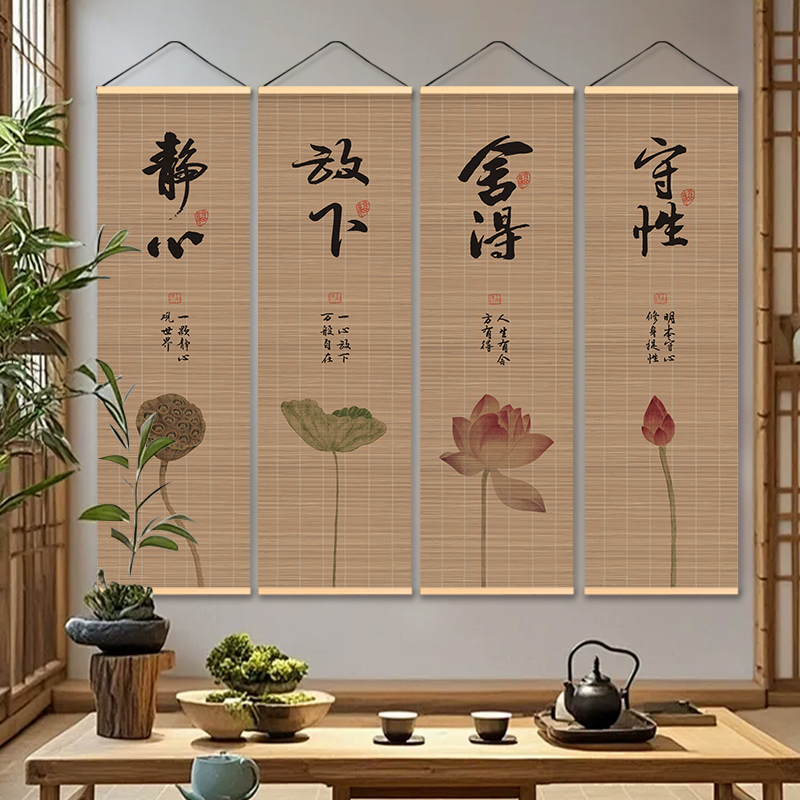 静心
一颗静心
观世界
放下
一心放下
万般自在
舍得
人生有舍
方有得
守性
明本守心
修身提性